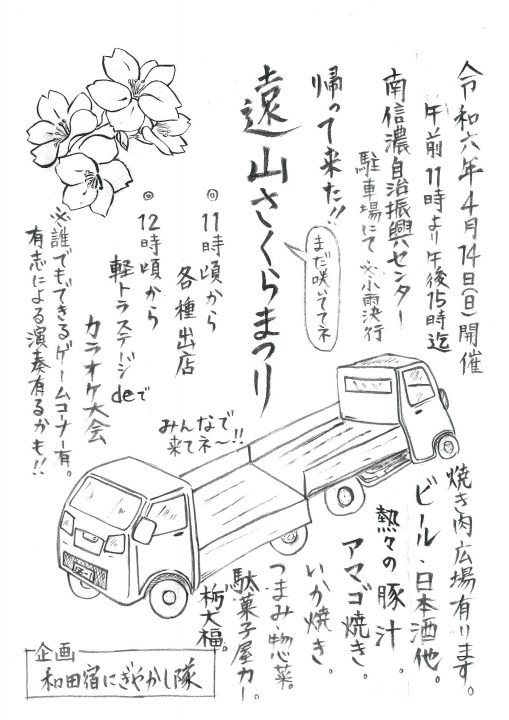 令和六年4月14日(日)開催
午前11時より午後15時迄
南信濃自治振興センター
駐車場にて ※小雨決行
帰って来た!!
遠山さくらまつり
まだ咲いててネ
◎11時頃から
各種出店
◎12時頃から
軽トラステージdeで
カラオケ大会
※誰でもできるゲームコーナー有。
有志による演奏有るかも!!
みんなで
来てネ~!!
焼き肉広場有ります。
ビール・日本酒他。
熱々の豚汁。
アマゴ焼き。
いか焼き。
つまみ・惣菜。
駄菓子屋カー。
栃大福。
企画
和田宿にぎやかし隊